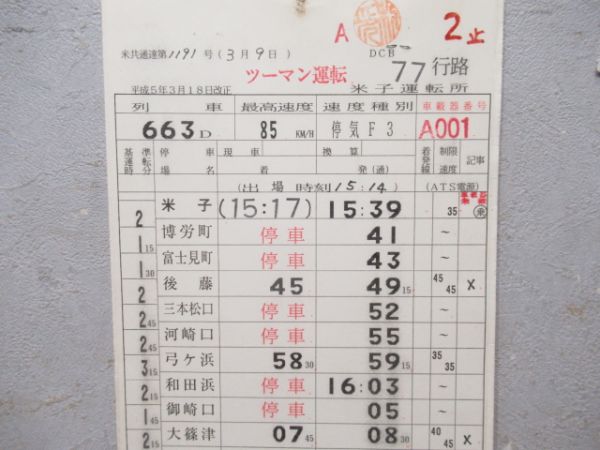 A 2止
米共通達第1191号(3月9日) DCB
ツーマン運転 77行路
平成5年3月18日改正 米子運転所
列車 最高速度 速度種別 車載器番号
663D 85KM/H 停気F3 A001
基準運転時分 停車場名 現車 着 換算 発(通) 着発線 制限速度 記事
(出場時刻15:14) (ATS電源)
米子 (15:17) 15:39 35
2
博労町 停車 41 ~
1 15
富士見町 停車 43 ~
1 30
後藤 45 49 15 45 45 X
2
三本松口 停車 52 ~
2 45
河崎口 停車 55 ~
2 45
弓ケ浜 58 30 59 15 35 35
3 15
和田浜 停車 16:03 ~
2 45
御崎口 停車 05 ~
1 45
大篠津 07 45 08 30 40 45 X
2 15